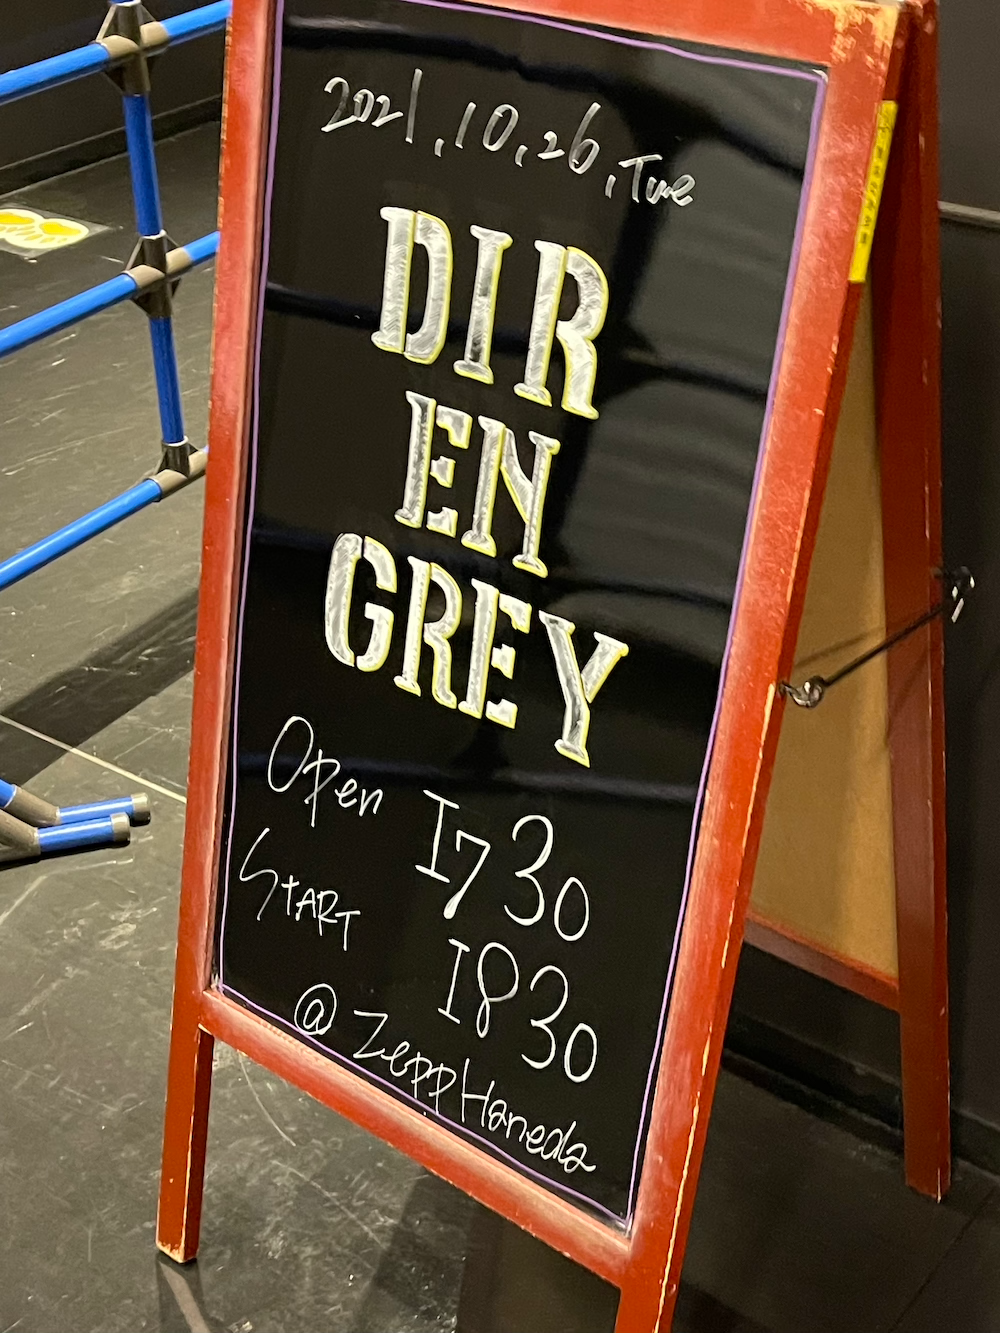 2021.10.26.Tue
DIR
EN
GREY
Open 17 30
START 18 30
@ Zepp Haneda